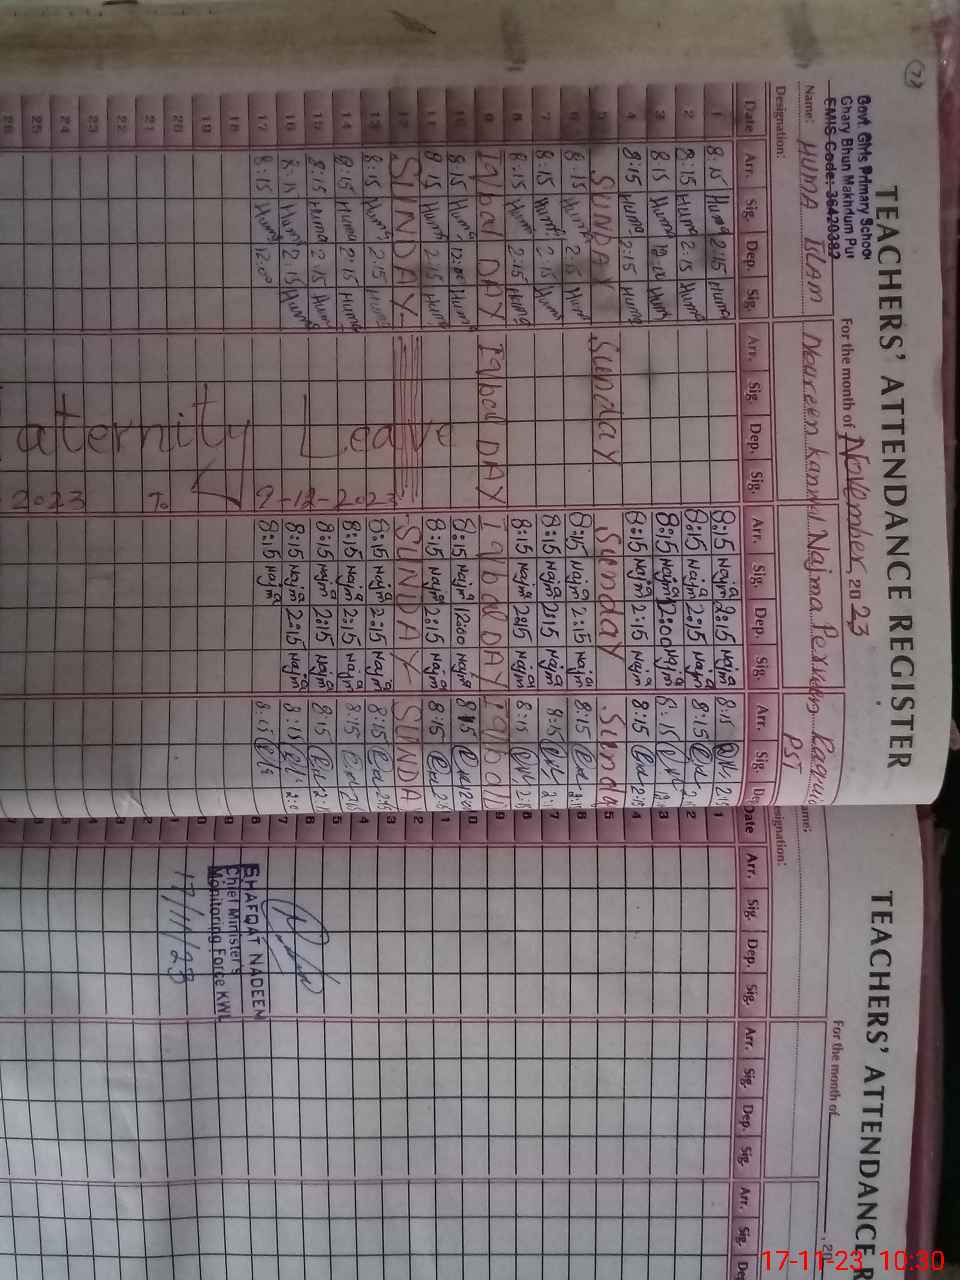 TEACHERS' ATTENDANCE REGISTER
Govt. Girls Primary School
Ghary Bhun Makhdum Pur
EMIS Code: 36420382
For the month of November, 2023
Name: HUMA ISLAM Noureen kanwal Najma Perveen
PST
Designation:
Date Arr. Sig. Dep. Sig. Arr. Sig. Dep. Sig. Arr. Sig. Dep. Sig. Arr. Sig.
1 8:15 Huma 2:15 Huma 8:15 Najma 2:15 Najma 8:15
2 8:15 Huma 2:15 Huma 8:15 Najma 2:15 Najma 8:15
3 8:15 Huma 12:00 Huma 8:15 Najma 12:00 Najma 8:15
4 8:15 Huma 2:15 Huma 8:15 Najma 2:15 Najma 8:15
5 SUNDAY Sunday Sunday Sunda
6 8:15 Huma 2:15 Huma 8:15 Najma 2:15 Najma 8:15
7 8:15 Huma 2:15 Huma 8:15 Najma 2:15 Najma 8:15
8 8:15 Huma 2:15 Huma 8:15 Najma 2:15 Najma 8:15
9 Iqbal DAY Iqbal DAY Iqbal DAY Iqbal D
10 8:15 Huma 12:00 Huma 8:15 Najma 12:00 Najma 8:15
11 8:15 Huma 2:15 Huma 8:15 Najma 2:15 Najma 8:15
12 SUNDAY SUNDAY SUNDA
13 8:15 Huma 2:15 Huma 8:15 Najma 2:15 Najma 8:15
14 8:15 Huma 2:15 Huma 8:15 Najma 2:15 Najma 8:15
15 8:15 Huma 2:15 Huma 8:15 Najma 2:15 Najma 8:15
16 8:15 Huma 2:15 Huma 8:15 Najma 2:15 Najma 8:15
17 8:15 Huma 12:00 8:15 Najma 8:15
18
19
20
21
22
23
24
25
26
aternity Leave
2023 To 9-12-2023
TEACHERS' ATTENDANCE R
For the month of , 20
ame:
esignation:
Date Arr. Sig. Dep. Sig. Arr. Sig. Dep. Sig. Arr. Sig. De
1
2
3
4
5
6
7
8
9
SHAFQAT NADEEM
Chief Minister's
Monitoring Force KWL
17/11/23
17-11-23 10:30